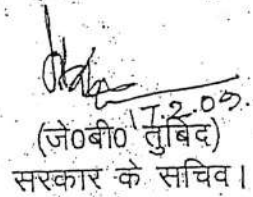 17.2.09.
(जे0बी0 तुबिद)
सरकार के सचिव।